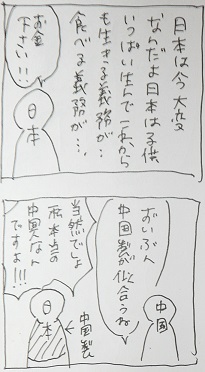 日本は今大変
なんだよ日本は子供
いっぱい生んでこれから
も生きる義務が…
食べる義務が…
お金
下さい!!
日本
中国
ずいぶん
中国製が似合うな
当然でしょ
私本当の
なん
ですよ!!!
日本
中国製